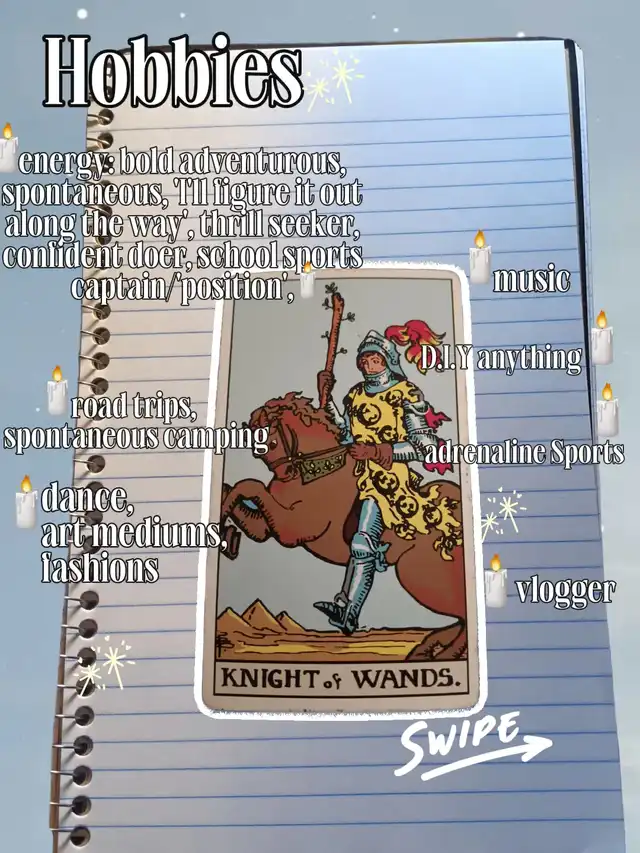 Hobbies
energy: bold adventurous,
spontaneous, 'I'll figure it out
along the way', thrill seeker,
confident doer, school sports
captain/'position',
music
D.I.Y anything
road trips,
spontaneous camping
adrenaline Sports
dance,
art mediums,
fashions
vlogger
KNIGHT of WANDS.
SWIPE